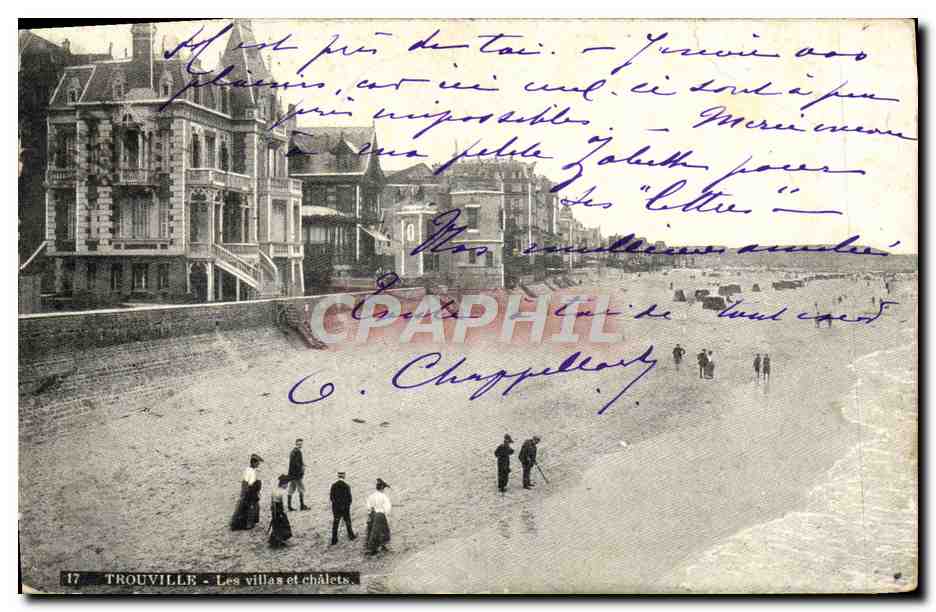 près de toi. — J'envie vos
plaisirs, car ici ceux-ci sont à peu
près impossibles. — Merci encore
à ma petite Zabette pour
ses "lettres" —
Nos meilleures amitiés
à toi de tout cœur
C. Chappellart
CPAPHIL
17 TROUVILLE - Les villas et châlets.